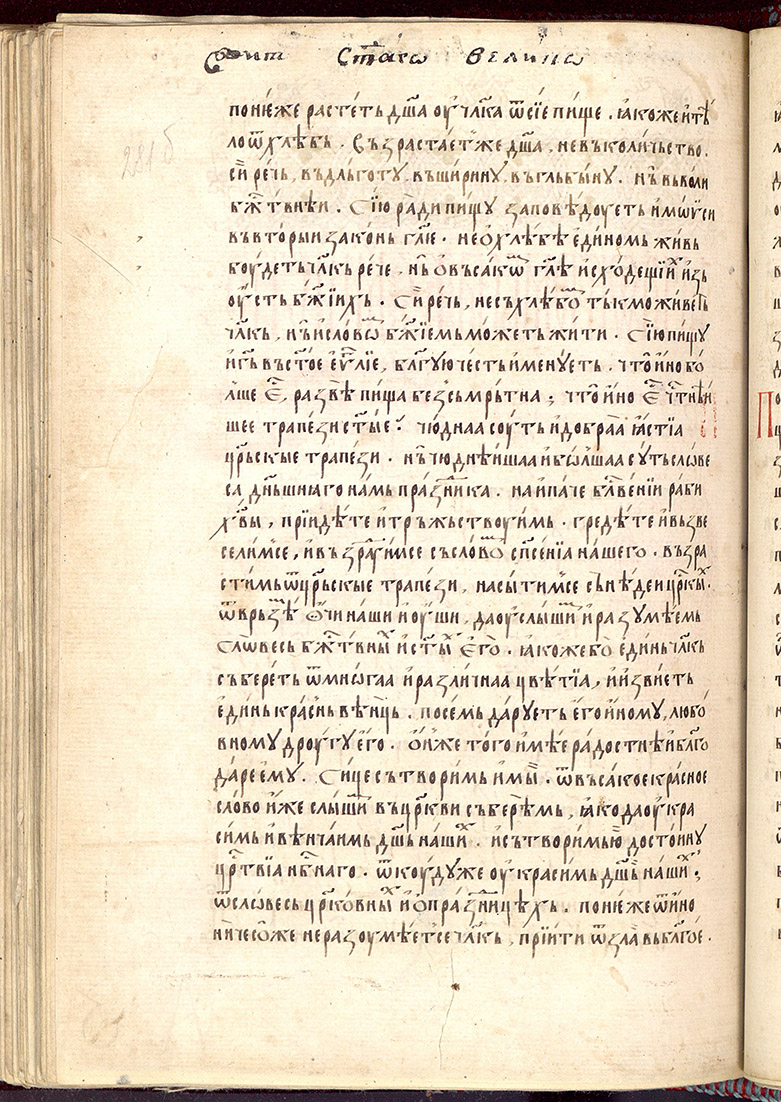 стго велико
221б
понѥже растеть дш҃а оу чл҃ка ѿ сїе пище . ꙗкоже и тѣ
ло ѿ хлѣбь . Въз растает же дш҃а , не въ количьство .
си рѣчь , въ дльготу , въ ширину , въ гльбыну . нь въ воли
бж҃твнѣи . Сїю ради пищу заповѣдоуеть и мѡѵси
въ вторыи законь гл҃ѥ . не ѡ хлѣбѣ единомь живь
боудеть чл҃кь рече , нь о въсакѡм гл҃ѣ исходещїих изь
оусть бж҃їихь . Си рѣчь , не съ хлѣбом тькмо живеть
чл҃кь , нь и словѡм бж҃їемь можеть жити . Сїю пищу
и гь въ ст҃ое еѵⷢлїе , бл҃гую честь именуеть . что ино бо
лше ес҃ , развѣ пища безсьмрьтна ; что ино ес҃ чтⷭнѣи
шее трапези ст҃ые ? чюднаа соуть и добраа ꙗстїа
цр҃ьскые трапези . нь чюднѣишаа и бѡлшаа суть слове
са дн҃ьшнꙗго намь праздника . наипаче блⷭвенїи раби
хв҃ы , прїидѣте и трьжьствоуимь . гредѣте и възве
селимсе , и въз рагⷣимсе съ словом сп҃сенїа нашего . възра
стимь ѿ цр҃ьскые трапези , насытимсе сьнѣдеи црⷭкыⷯ .
ѿврьзѣм ѻчи наши и оуши , да оуслышим и разумѣемь
слѡвесь бж҃твныⷯ и ст҃ыⷯ его . ꙗкоже бо единь чл҃кь
събереть ѿ многаа и различнаа цвѣтїа , и извиеть
единь краснь вѣньць . по семь даруеть его иному , любо
вному дроугу его . онже того имѣе радостнѣ и бл҃го
даре ему . Сице сътворимь и мы . ѿ въсакое красное
слово иже слышим въ цр҃кви съберѣмь , ꙗко да оукра
симь и вѣнчаимь дш҃ь нашиⷯ . и сътворимь ю достоину
црⷭтвїа нбⷭнаго . ѿкоуду же оукрасимь дш҃ь нашиⷯ ;
ѿ словесь цр҃ковныⷯ и ѡ праздницѣхь . понѥже ѿ ино
ничесоже не разоумѣетсе чл҃кь , прїити ѿ зла въ бл҃гое .